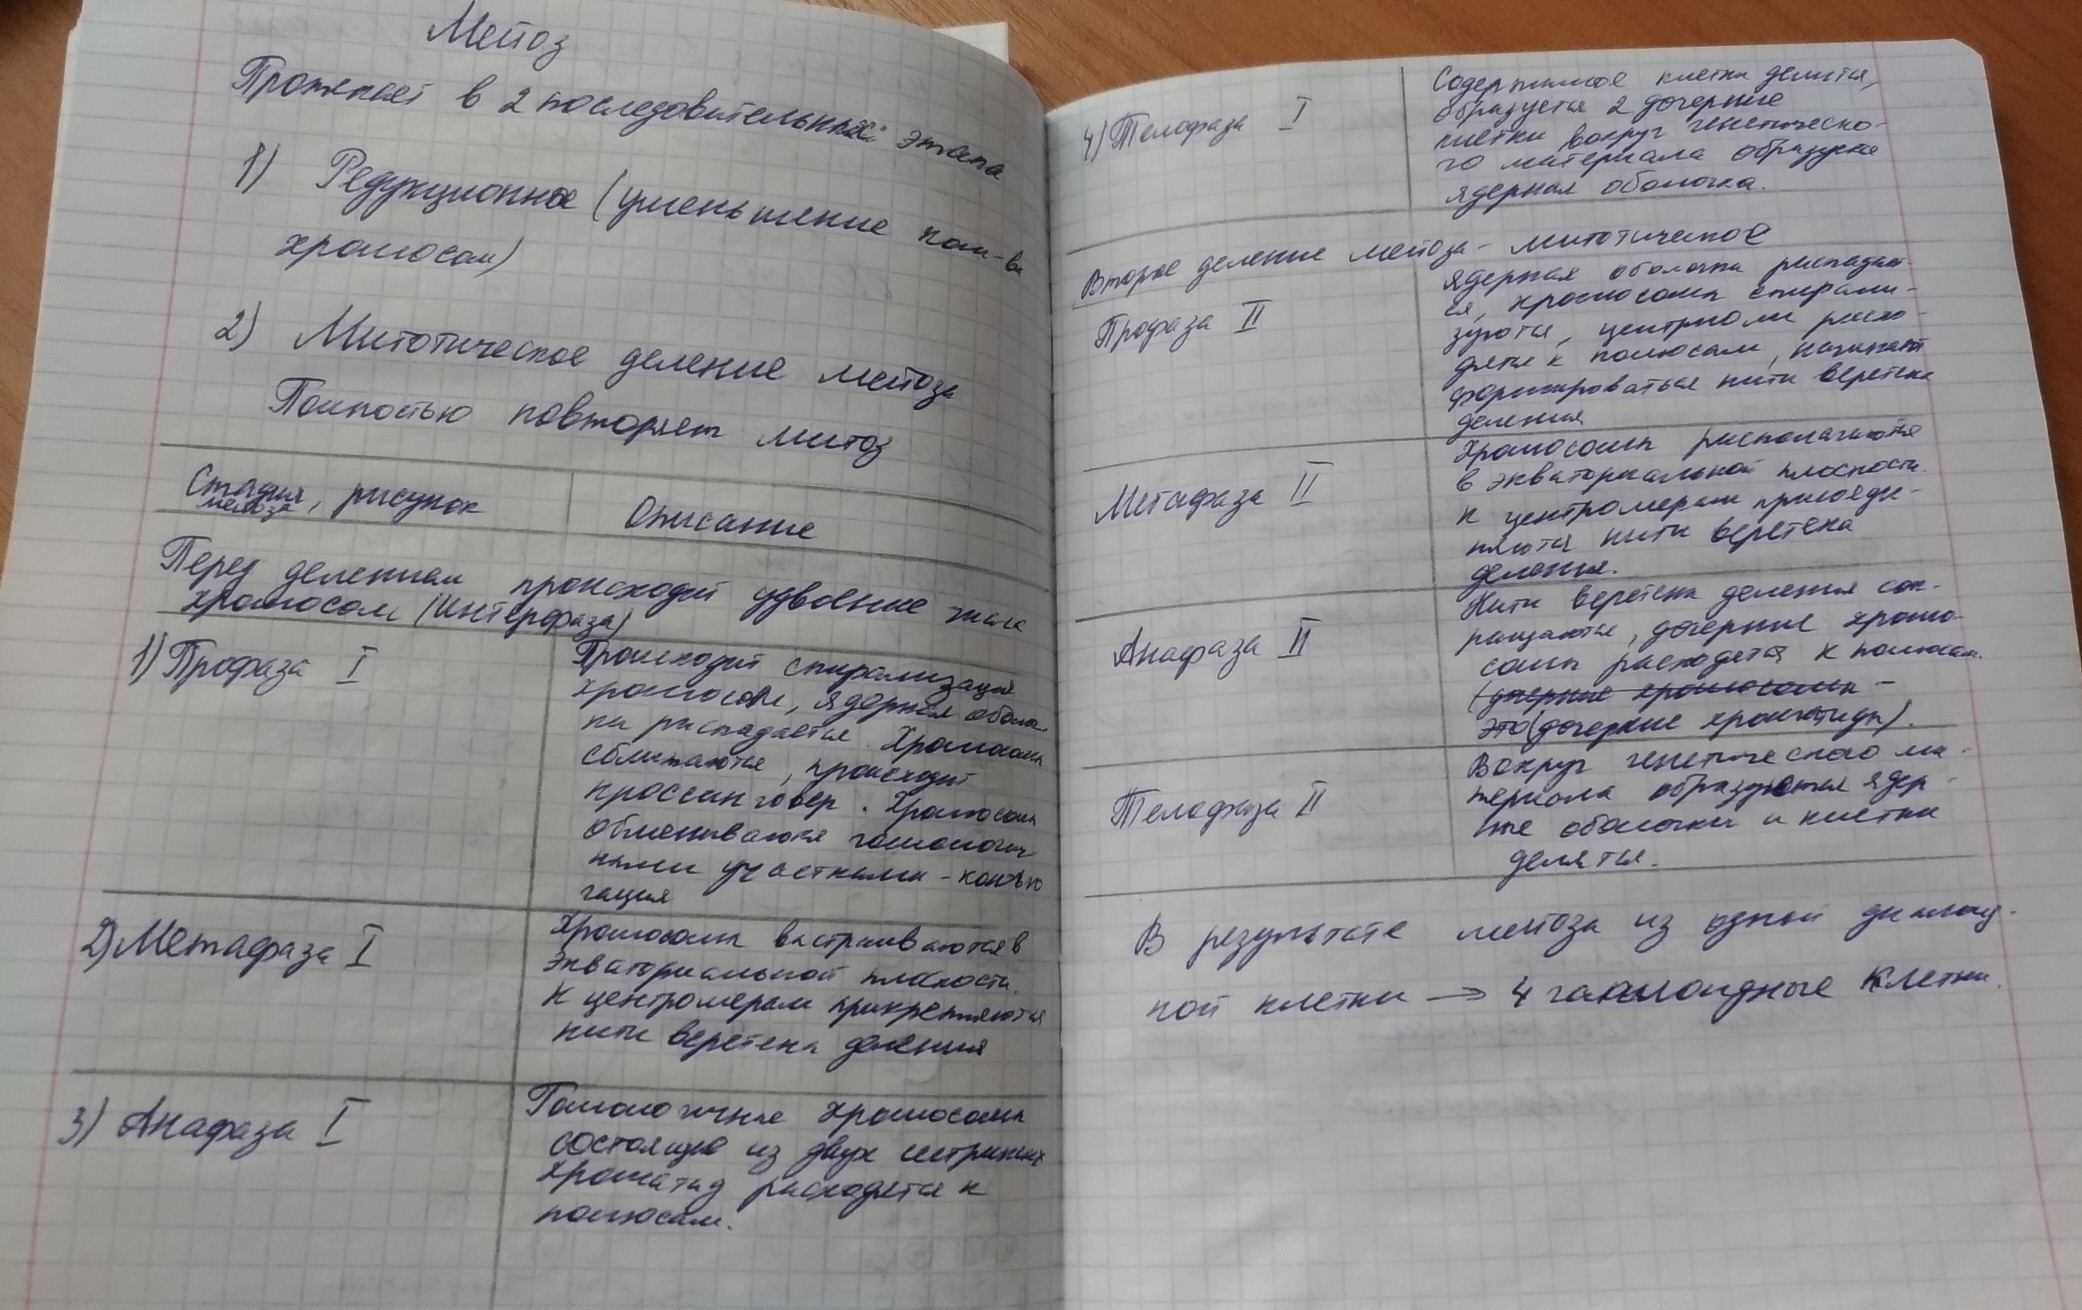 Мейоз
Протекает в 2 последовательных этапа
1) Редукционное (уменьшение кол-ва
хромосом)
2) Митотическое деление мейоза
Полностью повторяет митоз
Стадия мейоза, рисунок
Описание
Перед делением происходит удвоение числа
хромосом (интерфаза)
1) Профаза I
Происходит спирализация
хромосом, ядерная оболоч
ка распадается. Хромосомы
сближаются, происходит
кроссинговер. Хромосомы
обмениваются гомологич
ными участками - конъю
гация
2) Метафаза I
Хромосомы выстраиваются в
экваториальной плоскости.
К центромерам прикрепляются
нити веретена деления
3) Анафаза I
Гомологичные хромосомы
состоящие из двух сестринских
хроматид расходятся к
полюсам.
4) Телофаза I
Содержимое клетки делится,
образуется 2 дочерние
клетки вокруг генетическо-
го материала образуется
ядерная оболочка.
Второе деление мейоза - митотическое
Профаза II
Ядерная оболочка распадает-
ся, хромосомы спирали-
зуются, центриоли расхо-
дятся к полюсам, начинают
формироваться нити веретена
деления
Метафаза II
Хромосомы располагаются
в экваториальной плоскости.
К центромерам присоеди-
няются нити веретена
деления.
Анафаза II
Нити веретена деления сок-
ращаются, дочерние хромо-
сомы расходятся к полюсам.
(дочерние хромосомы -
это (дочерние хроматиды).
Телофаза II
Вокруг генетического ма-
териала образуются ядер-
ные оболочки и клетки
делятся.
В результате мейоза из одной диплоид-
ной клетки → 4 гаплоидные клетки.